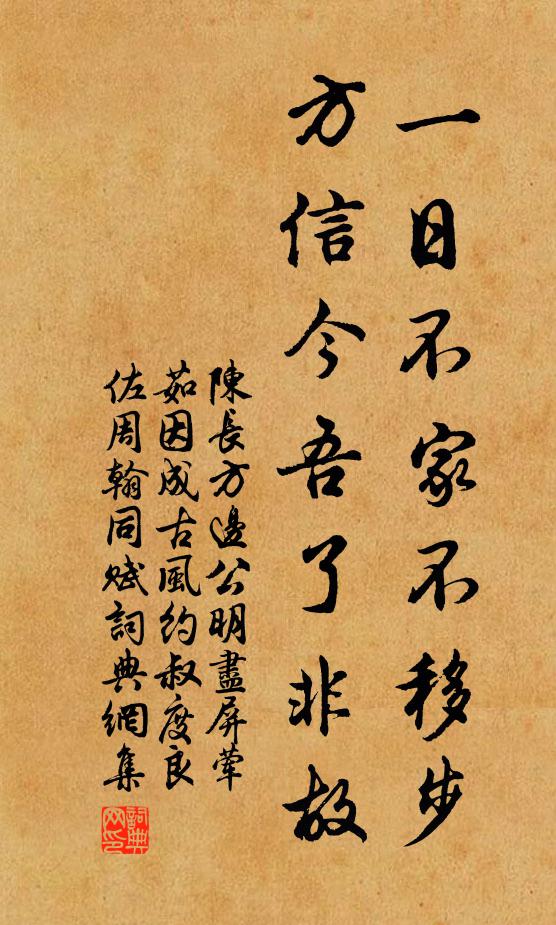 一日不家不移步
方信今吾了非故
陳長方邊公明盡屏葷
茹因成古風約叔度良
佐周翰同賦詞典網集
詞典网印